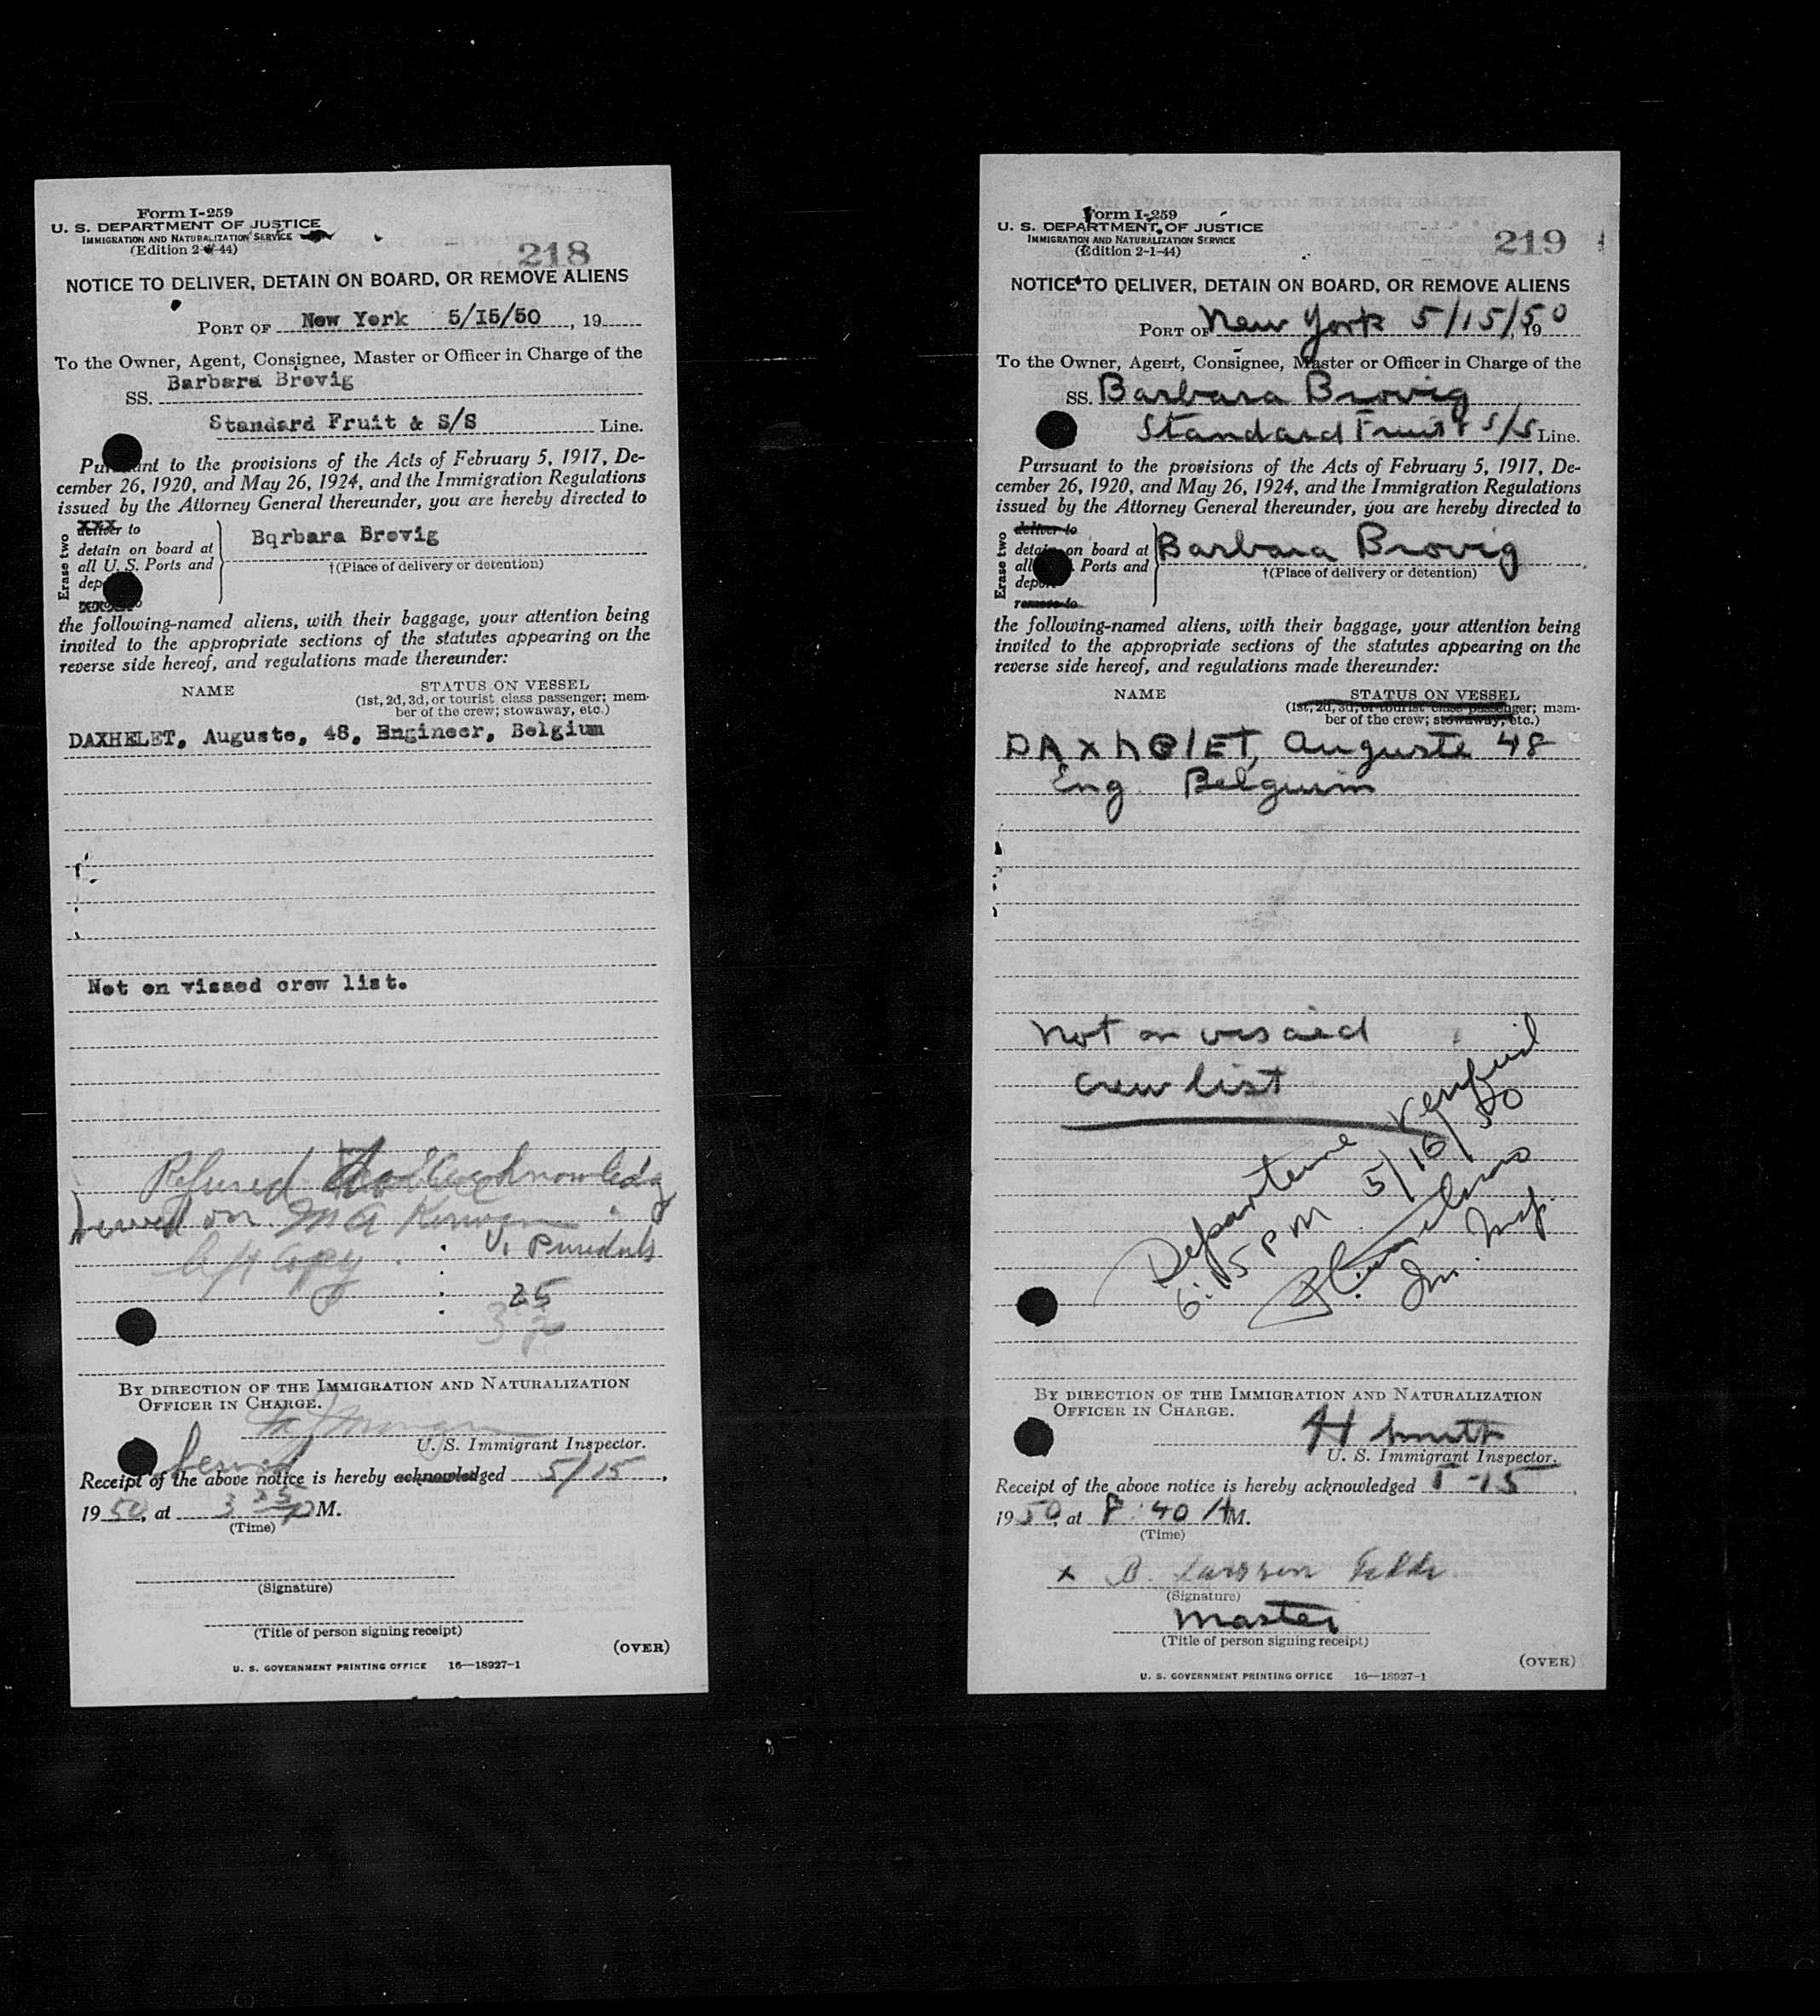 Form I-259
U. S. DEPARTMENT OF JUSTICE
IMMIGRATION AND NATURALIZATION SERVICE
(Edition 2-1-44)
218
NOTICE TO DELIVER, DETAIN ON BOARD, OR REMOVE ALIENS
PORT OF New York 5/15/50, 19
To the Owner, Agent, Consignee, Master or Officer in Charge of the
SS. Barbara Brovig
Standard Fruit & S/S Line.
Pursuant to the provisions of the Acts of February 5, 1917, De-
cember 26, 1920, and May 26, 1924, and the Immigration Regulations
issued by the Attorney General thereunder, you are hereby directed to
Erase two
deliver to
detain on board at
all U. S. Ports and
Bqrbara Brovig
†(Place of delivery or detention)
the following-named aliens, with their baggage, your attention being
invited to the appropriate sections of the statutes appearing on the
reverse side hereof, and regulations made thereunder:
NAME
STATUS ON VESSEL
(1st, 2d, 3d, or tourist class passenger; mem-
ber of the crew; stowaway, etc.)
DAXHELET, Auguste, 48, Engineer, Belgium
Not on visaed crew list.
Refused to acknowledg
served on M A
Copy
25
3
BY DIRECTION OF THE IMMIGRATION AND NATURALIZATION
OFFICER IN CHARGE.
U. S. Immigrant Inspector.
served
Receipt of the above notice is hereby acknowledged 5/15,
1950, at 3 25 P M.
(Time)
(Signature)
(Title of person signing receipt)
(OVER)
U. S. GOVERNMENT PRINTING OFFICE 16—18927-1
Form I-259
U. S. DEPARTMENT OF JUSTICE
IMMIGRATION AND NATURALIZATION SERVICE
(Edition 2-1-44)
219
NOTICE TO DELIVER, DETAIN ON BOARD, OR REMOVE ALIENS
PORT OF New York 5/15/50, 19
To the Owner, Agent, Consignee, Master or Officer in Charge of the
SS. Barbara Brovig
Standard Fruit & S/S Line.
Pursuant to the provisions of the Acts of February 5, 1917, De-
cember 26, 1920, and May 26, 1924, and the Immigration Regulations
issued by the Attorney General thereunder, you are hereby directed to
Erase two
deliver to
detain on board at
all Ports and
deport
remove to
Barbara Brovig
†(Place of delivery or detention)
the following-named aliens, with their baggage, your attention being
invited to the appropriate sections of the statutes appearing on the
reverse side hereof, and regulations made thereunder:
NAME
STATUS ON VESSEL
(1st, 2d, 3d, or tourist class passenger; mem-
ber of the crew; stowaway, etc.)
DAXhelET, Auguste 48
Eng. Belgium
Not on visaed
crew list
Departure verified
6:15 PM 5/16/50
Im. Insp.
BY DIRECTION OF THE IMMIGRATION AND NATURALIZATION
OFFICER IN CHARGE.
H Smith
U. S. Immigrant Inspector.
Receipt of the above notice is hereby acknowledged 5-15,
1950, at 8:40 AM.
(Time)
x
(Signature)
Master
(Title of person signing receipt)
(OVER)
U. S. GOVERNMENT PRINTING OFFICE 16—18927-1